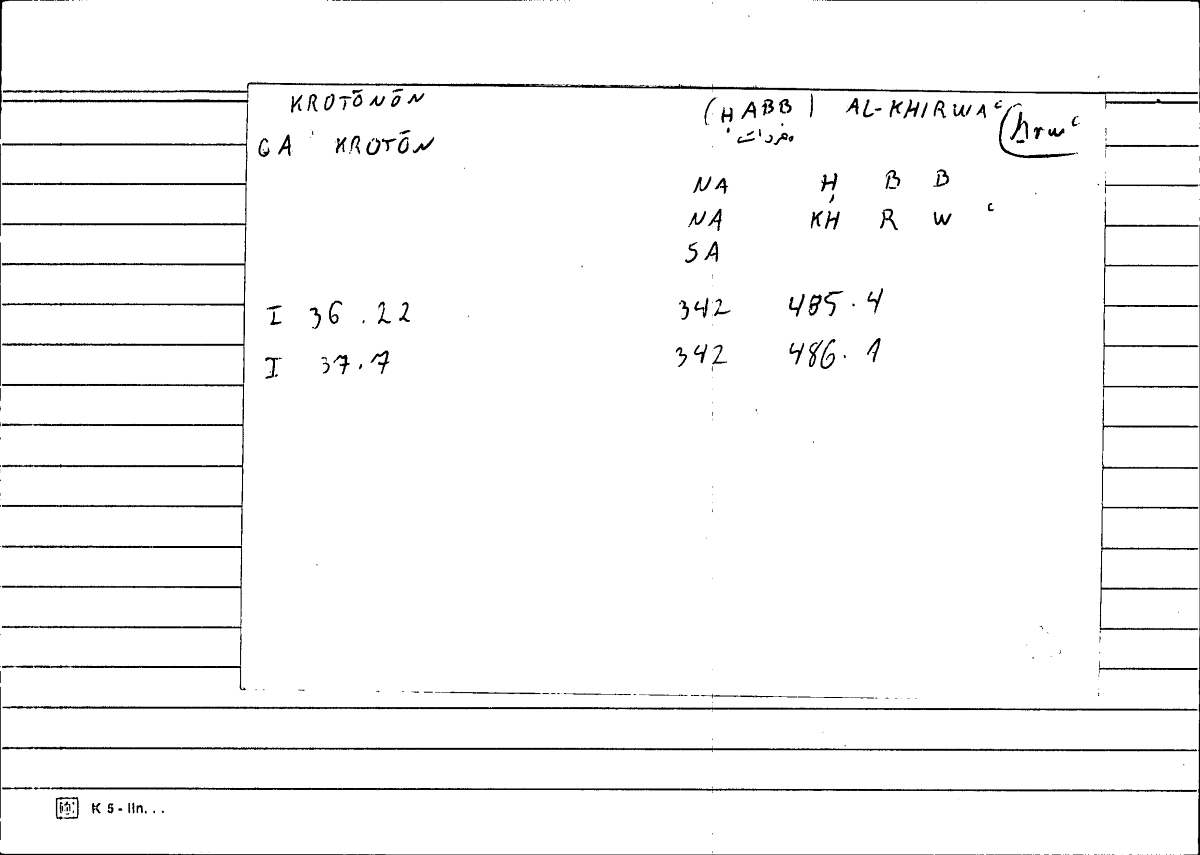 KROTŌNŌN (ḤABB) AL-KHIRWAʿ (ḫrwʿ
GA KROTŌN مفردات
NA Ḥ B B
NA KH R W ʿ
SA
I 36.22 342 485.4
I 37.7 342 486.1
K 5 - lin...